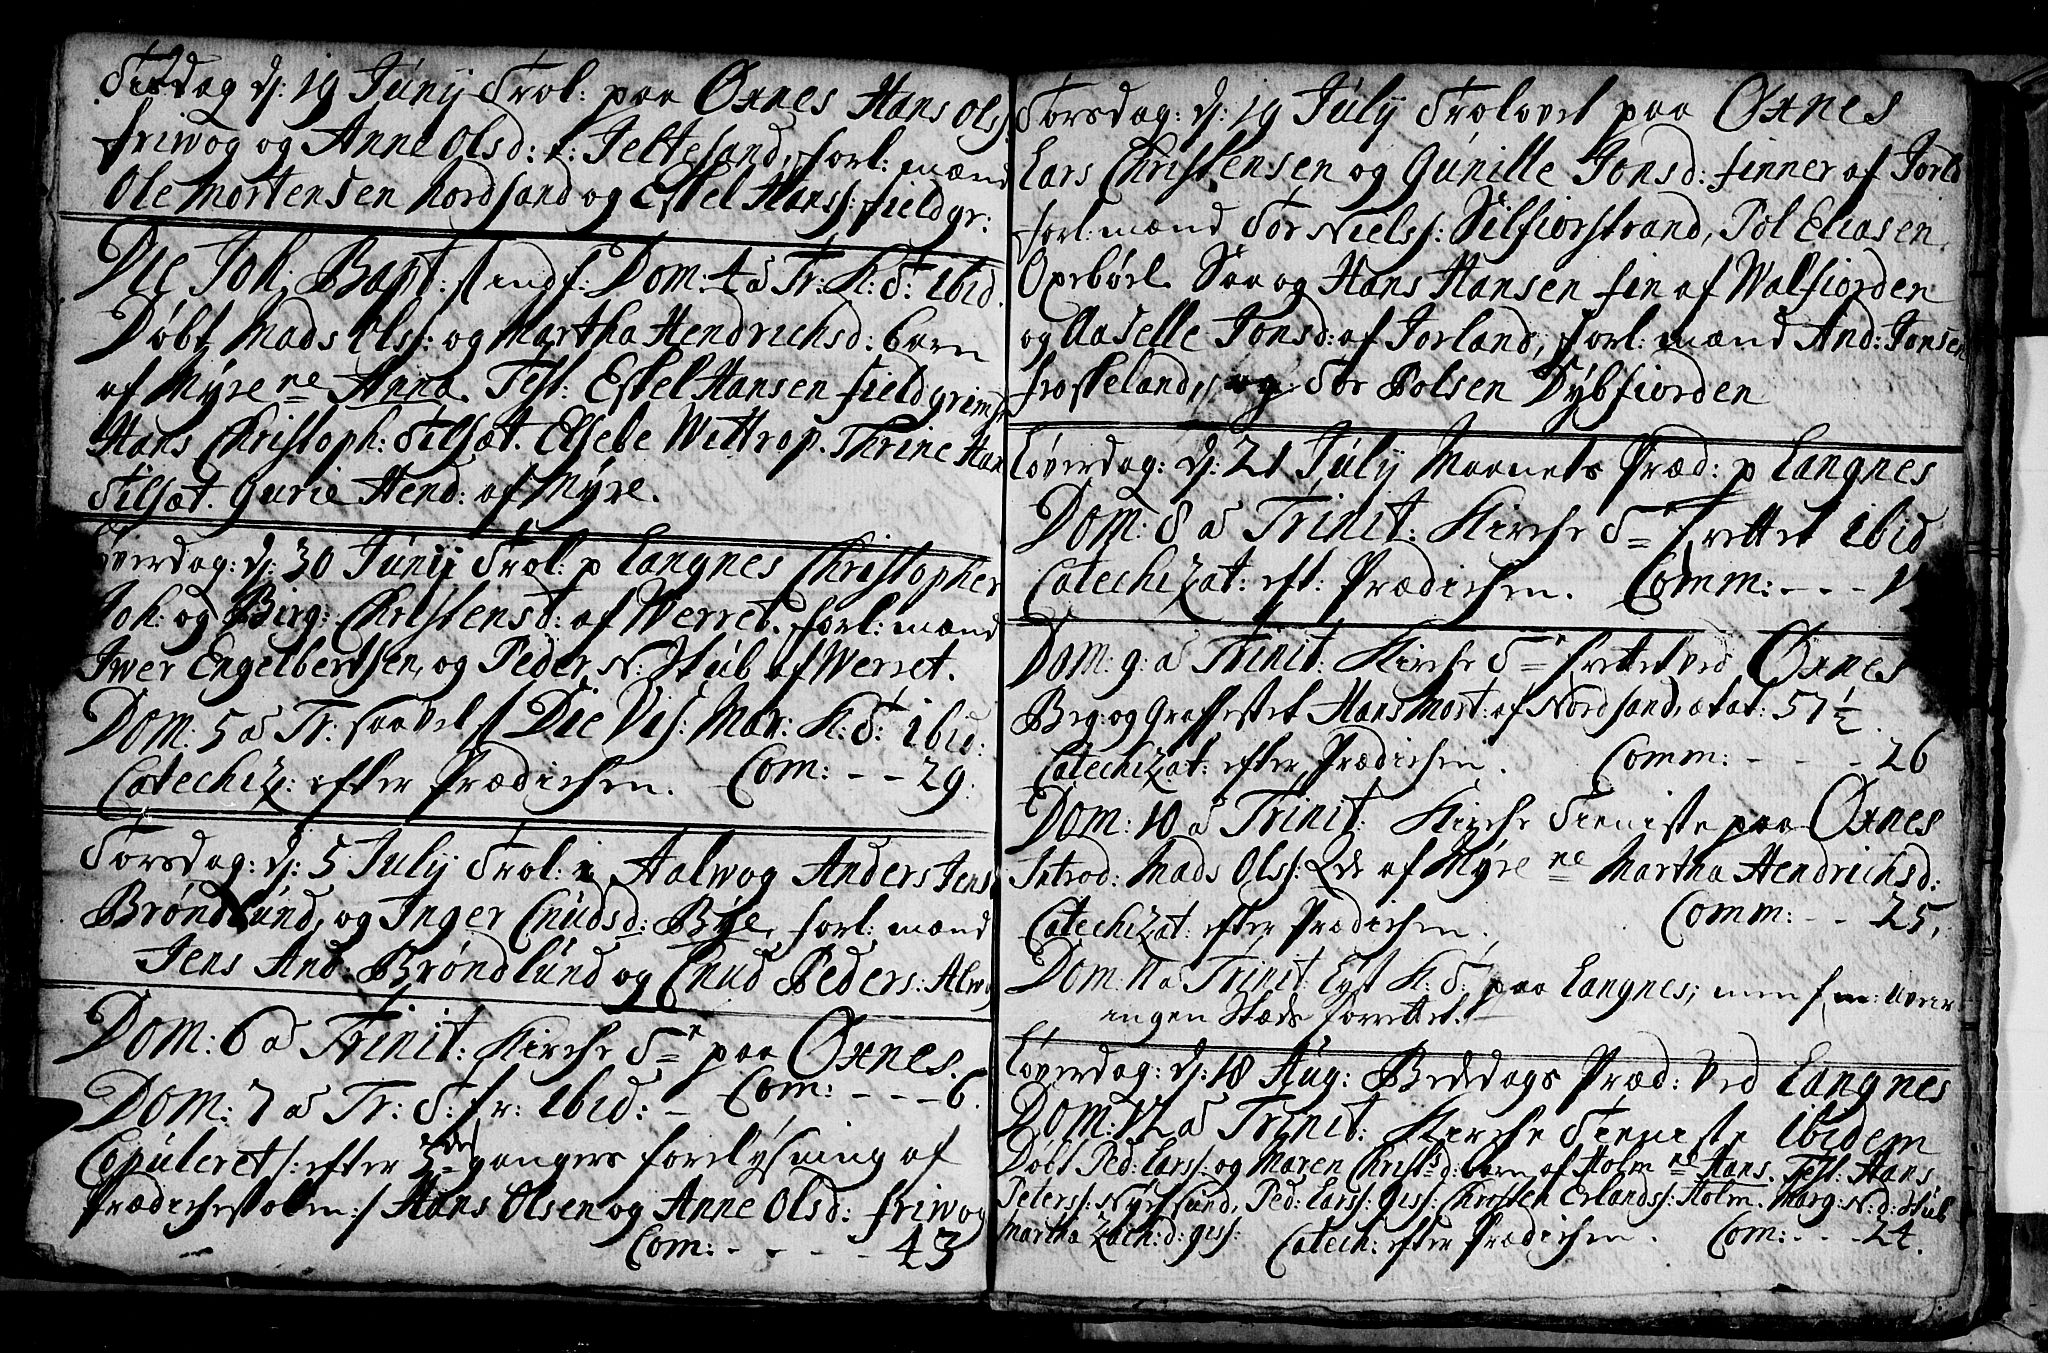 Tisdag d: 19 Junij Trol: paa Øxnes Hans Ols:
friwog og Anne Olsd: i: Jeltesand, forl: mænd
Ole Mortensen Nordsand og Eskel Hanss: fieldgr:
Die Joh: Bapt: s indf: Dom: 4 a Tr: K: T: ibid.
Døbt Mads Olss: og Martha Hendrichsd: barn
af Myre ne Anna. Test: Eskel Hansen fieldgrims
Hans Christoph: Tilsæt. Elsebe Wittrop. Thrine Han
Tilsæt. Gurie Hend: af Myre.
Løverdag: d: 30 Junij Trol: p Langnes Christopher
Joh: og Birg: Christensd: af Werret. forl: mænd
Iwer Engelbertsen, og Peder N: Stub af Werret.
Dom: 5 a Tr: saavel s Die Vis: Mar: K: T: ibid:
Catechiz: efter Prædichen. Com: - - 29.
Torsdag: d: 5 July Trol: i Aalwog Anders Jens
Brøndlund, og Inger Cnudsd: Bye, forl: mænd
Jens And: Brøndlund og Cnud Peders: Alwo
Dom: 6 a Trinit: Kirche T=e paa Øxnes.
Dom: 7 a Tr: T: fr: ibid: - Com: - - - 6.
Copuleret /: efter 3de gangers forelysning af
Prædichestolen :/ Hans Olsen og Anne Olsd: friwog
Com: - - - - 43
Torsdag: d: 19 July Trolovet paa Øxnes
Lars Christensen og Gunille Jonsd: finner af Jorld
forl: mænd Tor Nielss: Silfiorstrand, Pol Eliasen,
Oxebøel. Saa og Hans Hansen fin af Walfiorden
og Aaselle Jonsd: af Jorland, forl: mænd And: Jonsen
froskeland, og Tor Polsen Dybfiorden
Løverdag: d: 21 July Maanets Præd: p Langnes
Dom: 8 a Trinit: Kirche T= frettet ibid
Catechizat: eft: Prædichen. Comm: - - -
Dom: 9: a Trinit: Kirche T=e frettet ved Øxnes
Beg: og Graffestet Hans Mort: af Nordsand, ætat: 57 1/2.
Catechizat: efter Prædichen. Comm: - - - 26
Dom: 10 a Trinit: Kirche Tieniste paa Øxnes
Introd: Mads Olss: Qde af Myre ne Martha Hendrichsd:
Catechizat: efter Prædichen. Comm: - - 25,
Dom: 11 a Trinit: Lyst K: T: paa Langnes; men for m: uveir
ingen Stæds forrettet.
Løverdag: d: 18 Aug: Bededags Præd: ved Langnes
Dom: 12 a Trinit: Kirche Tieniste ibidem
Døbt Ped: Larss: og Maren Christ: d: barn af Holm ne Hans. Test: Hans
Peterss: Nyksund, Ped: Larss: Giss: Christen Erlandss: Holm. Marg: N: d: Stub
Martha Zach: d: Giss: Catech: efter Prædichen. Com: - - - 24.